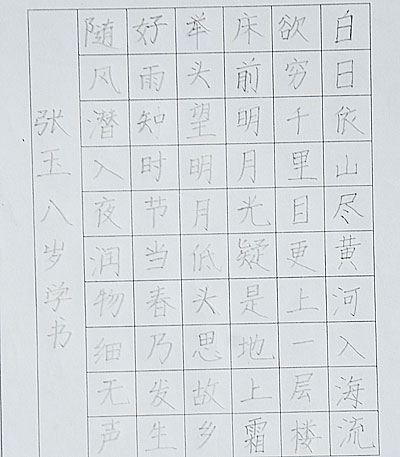 白日依山尽黄河入海流
欲穷千里目更上一层楼
床前明月光疑是地上霜
举头望明月低头思故乡
好雨知时节当春乃发生
随风潜入夜润物细无声
张玉八岁学书